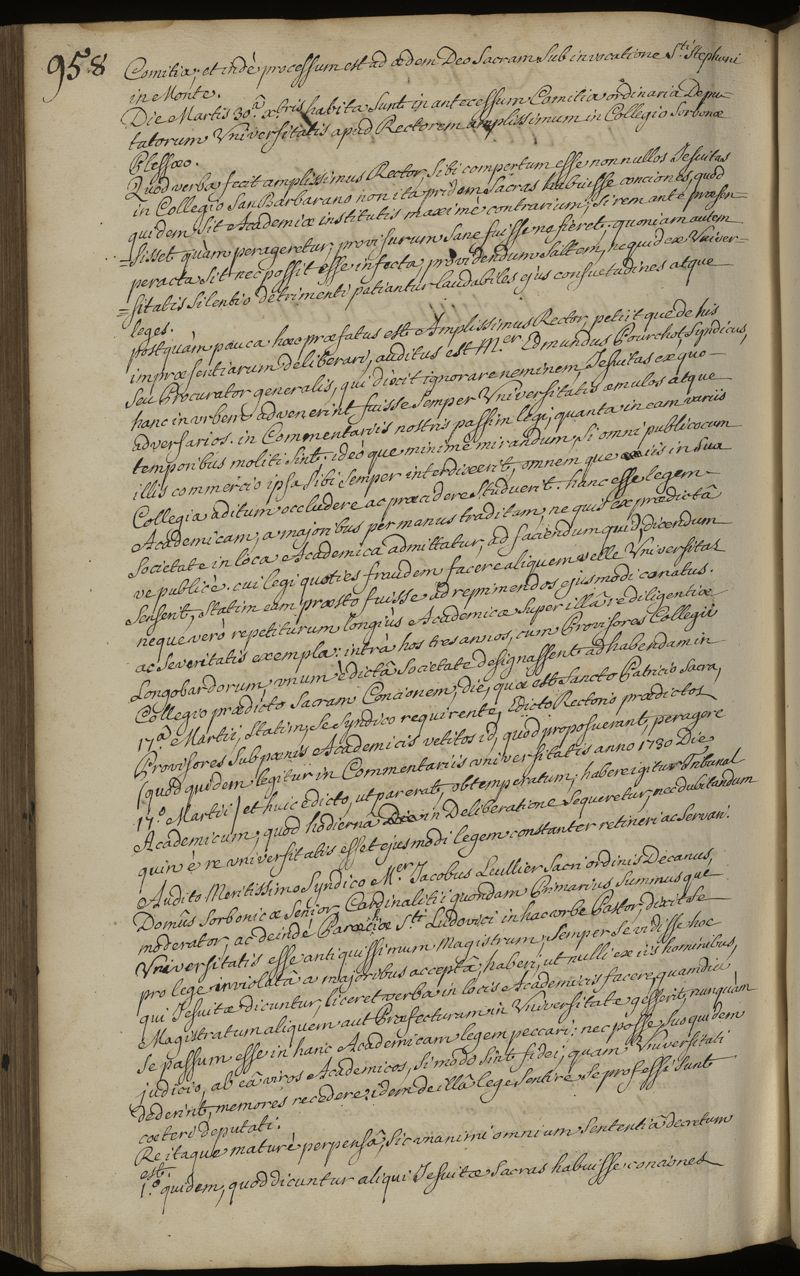 958
Comitia, et indè processum est ad ædem Deo Sacram Sub invocatione Sti. Stephani
in Monte.
Die Martis 30.a xbris habita Sunt in antecessum Comitia ordinaria Depu-
tatorum Universitatis apud Rectorem amplissimum in Collegio Sorbonæ
Plessæo.
Quod verba fecit amplissimus Rector, Sibi compertum esse nonnullos Jesuitas
in Collegio San Barbarano non ita pridem Sacras habuisse conciones, quod
quidem Sit Academiæ institutis maximè contrarium, Si rem ante præsen-
=sisset quàm perageretur, provisurum Sane fuisse ne fieret; quoniam autem
peracta Sit nec possit esse infecta, providendum Saltem, nequid ex Univer-
=sitatis Silentio detrimenti patiantur laudabiles ejus consuetudines atque
leges.
Postquàm pauca hæc præfatus est Amplissimus Rector, petiit que de his
impræsentiarum deliberari, auditus est Mer. Edmundus Pourchot, Syndicus,
Seu Procurator generalis, qui dixit ignorare neminem, Jesuitas ex quo-
hanc in urbem advenerint fuisse Semper Universitatis æmulos atque
adversarios. in Commentariis nostris passim legi, quanta in eam variis
temporibus moliti Sint. ideo que minimè mirandum, Si omni publicocum
illis commercio ipsa Sibi Semper interdixerit, omnem que iis in Sua
Collegia aditum occludere ac præcidere Studuerit. hanc esse legem-
Academicam, a majoribus per manus traditam, ne quis ex prædictâ
Societate in loca Academica admittatur, ad faciendum quid, dicendum
ve publicè. cui legi quoties fraudem facere aliquem velle Universitas
Sensent, Statim eam præsto fuisse ad reprimendos ejusmodi conatus.
neque verò repetiturum longiùs Academicæ Super illâ re diligentiæ
ac Severitatis exempla: intrà hos tres annos, cum Provisores Collegii
Longobardorum, unum è dictâ Societate designassent ad habendam in
Collegio prædicto Sacram Concionem, die, quæ est Sancto Patricio Sacra,
17.a Martii, Statim, Se Syndico requirente, Edicto Rectorio prædictos
Provisores Sub pænis Academicis vetitos id, quod proposuerant, peragere
(quod quidem legitur in Commentariis universitatis anno 1730 Die
17.a Martii) et huic edicto, ut par erat, obtemperatum; habere igitur Tribunal
Academicum, quod hodiernâ in Deliberatione Sequeretur, nec dubitandum
quin è re universitatis esset ejusmodi legem constanter retineri ac Servari.
Audito Meritissimo Syndico Mer. Jacobus Leullier Sacri ordinis Decanus,
Domûs Sorbonicæ Senior, Cardinalitii quondam Primarius Summusque
moderator, ac deindè Parœciæ Sti. Ludovici in hac urbe Pastor, dixit Se
Universitatis esse antiquissimum Magistrum, Semper Se vidisse hoc
pro lege inviolatâ a majoribus acceptâ, haberi, ut nulli ex iis hominibus,
qui Jesuitæ dicuntur, liceret verba in locis Academicis facere, quamdiu
Magistratum aliquem aut Præfecturam in Universitate gesserit, nunquàm
Se passum esse in hanc Academicam legem peccari; nec posse Suo quidem
judicio, ab eâ viros Academicos, Si modo Sint fidei, quam Universitati
dederint, memores recedere; idem de illâ lege Sentire Se professi Sunt
cæteri deputati.
Re itaque maturè perpensâ, Sic unanimi omnium Sententiâ decretum
est.
1.o quidem, quod dicuntur aliqui Jesuitæ Sacras habuisse conciones